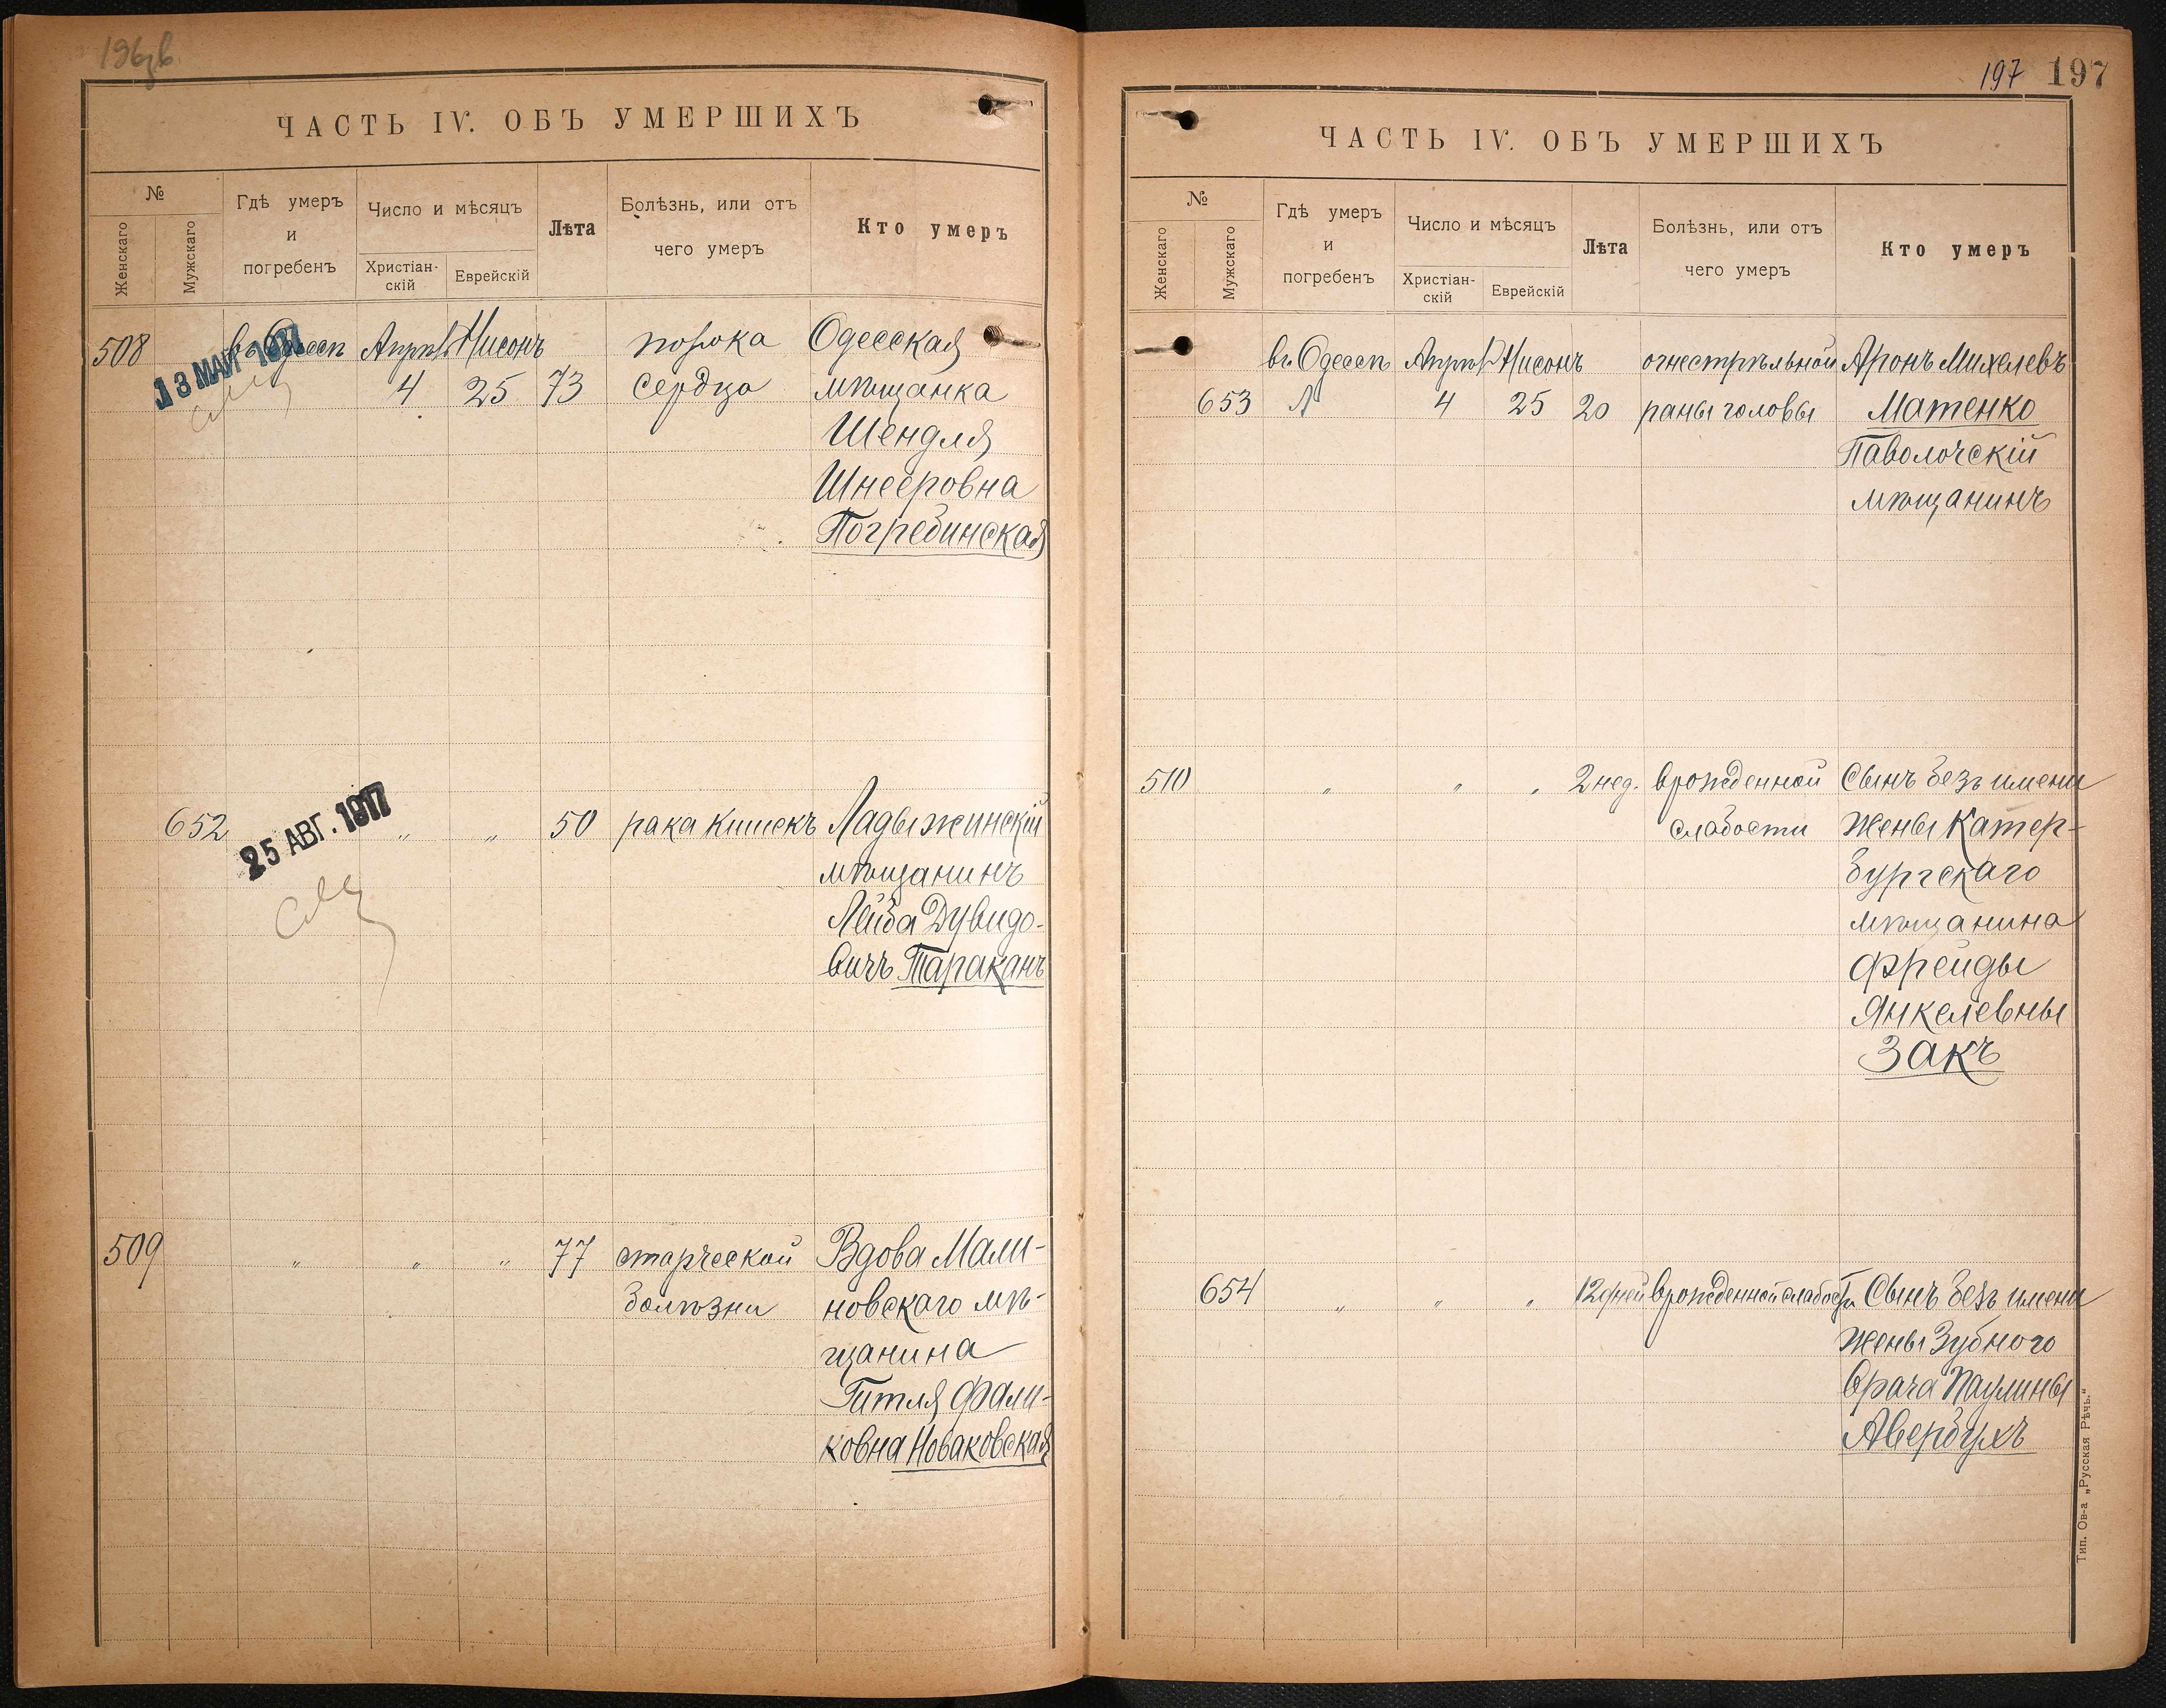 196 об
ЧАСТЬ IV. ОБЪ УМЕРШИХЪ
№
Женскаго
Мужскаго
Гдѣ умеръ
и
погребенъ
Число и мѣсяцъ
Христіан-
скій
Еврейскій
Лѣта
Болѣзнь, или отъ
чего умеръ
Кто умеръ
508 въ Одессѣ Апрѣль Нисонъ порока Одесская
13 МАЙ 1917
4 25 73 сердца мѣщанка
Шендля
Шнееровна
Погребинская
652 " " 50 рака кишекъ Ладыжинскій
25 АВГ. 1917
мѣщанинъ
Лейба Дувидо-
вичъ Тараканъ
509 " " " 77 старческой Вдова Мали-
болѣзни новскаго мѣ-
щанина
Гитля Фали-
ковна Новаковская
197 197
ЧАСТЬ IV. ОБЪ УМЕРШИХЪ
№
Женскаго
Мужскаго
Гдѣ умеръ
и
погребенъ
Число и мѣсяцъ
Христіан-
скій
Еврейскій
Лѣта
Болѣзнь, или отъ
чего умеръ
Кто умеръ
въ Одессѣ Апрѣль Нисонъ огнестрѣльной Аронъ Михелевъ
653 4 25 20 раны головы Матенко
Паволочскій
мѣщанинъ
510 " " " 2 нед. врожденной Сынъ безъ имени
слабости жены Катер-
бургскаго
мѣщанина
Фрейды
Янкелевны
Закъ
654 " " " 12 дней врожденной слабости Сынъ безъ имени
жены Зубного
врача Паулины
Авербухъ
Тип. Ов-а „Русская Рѣчь."